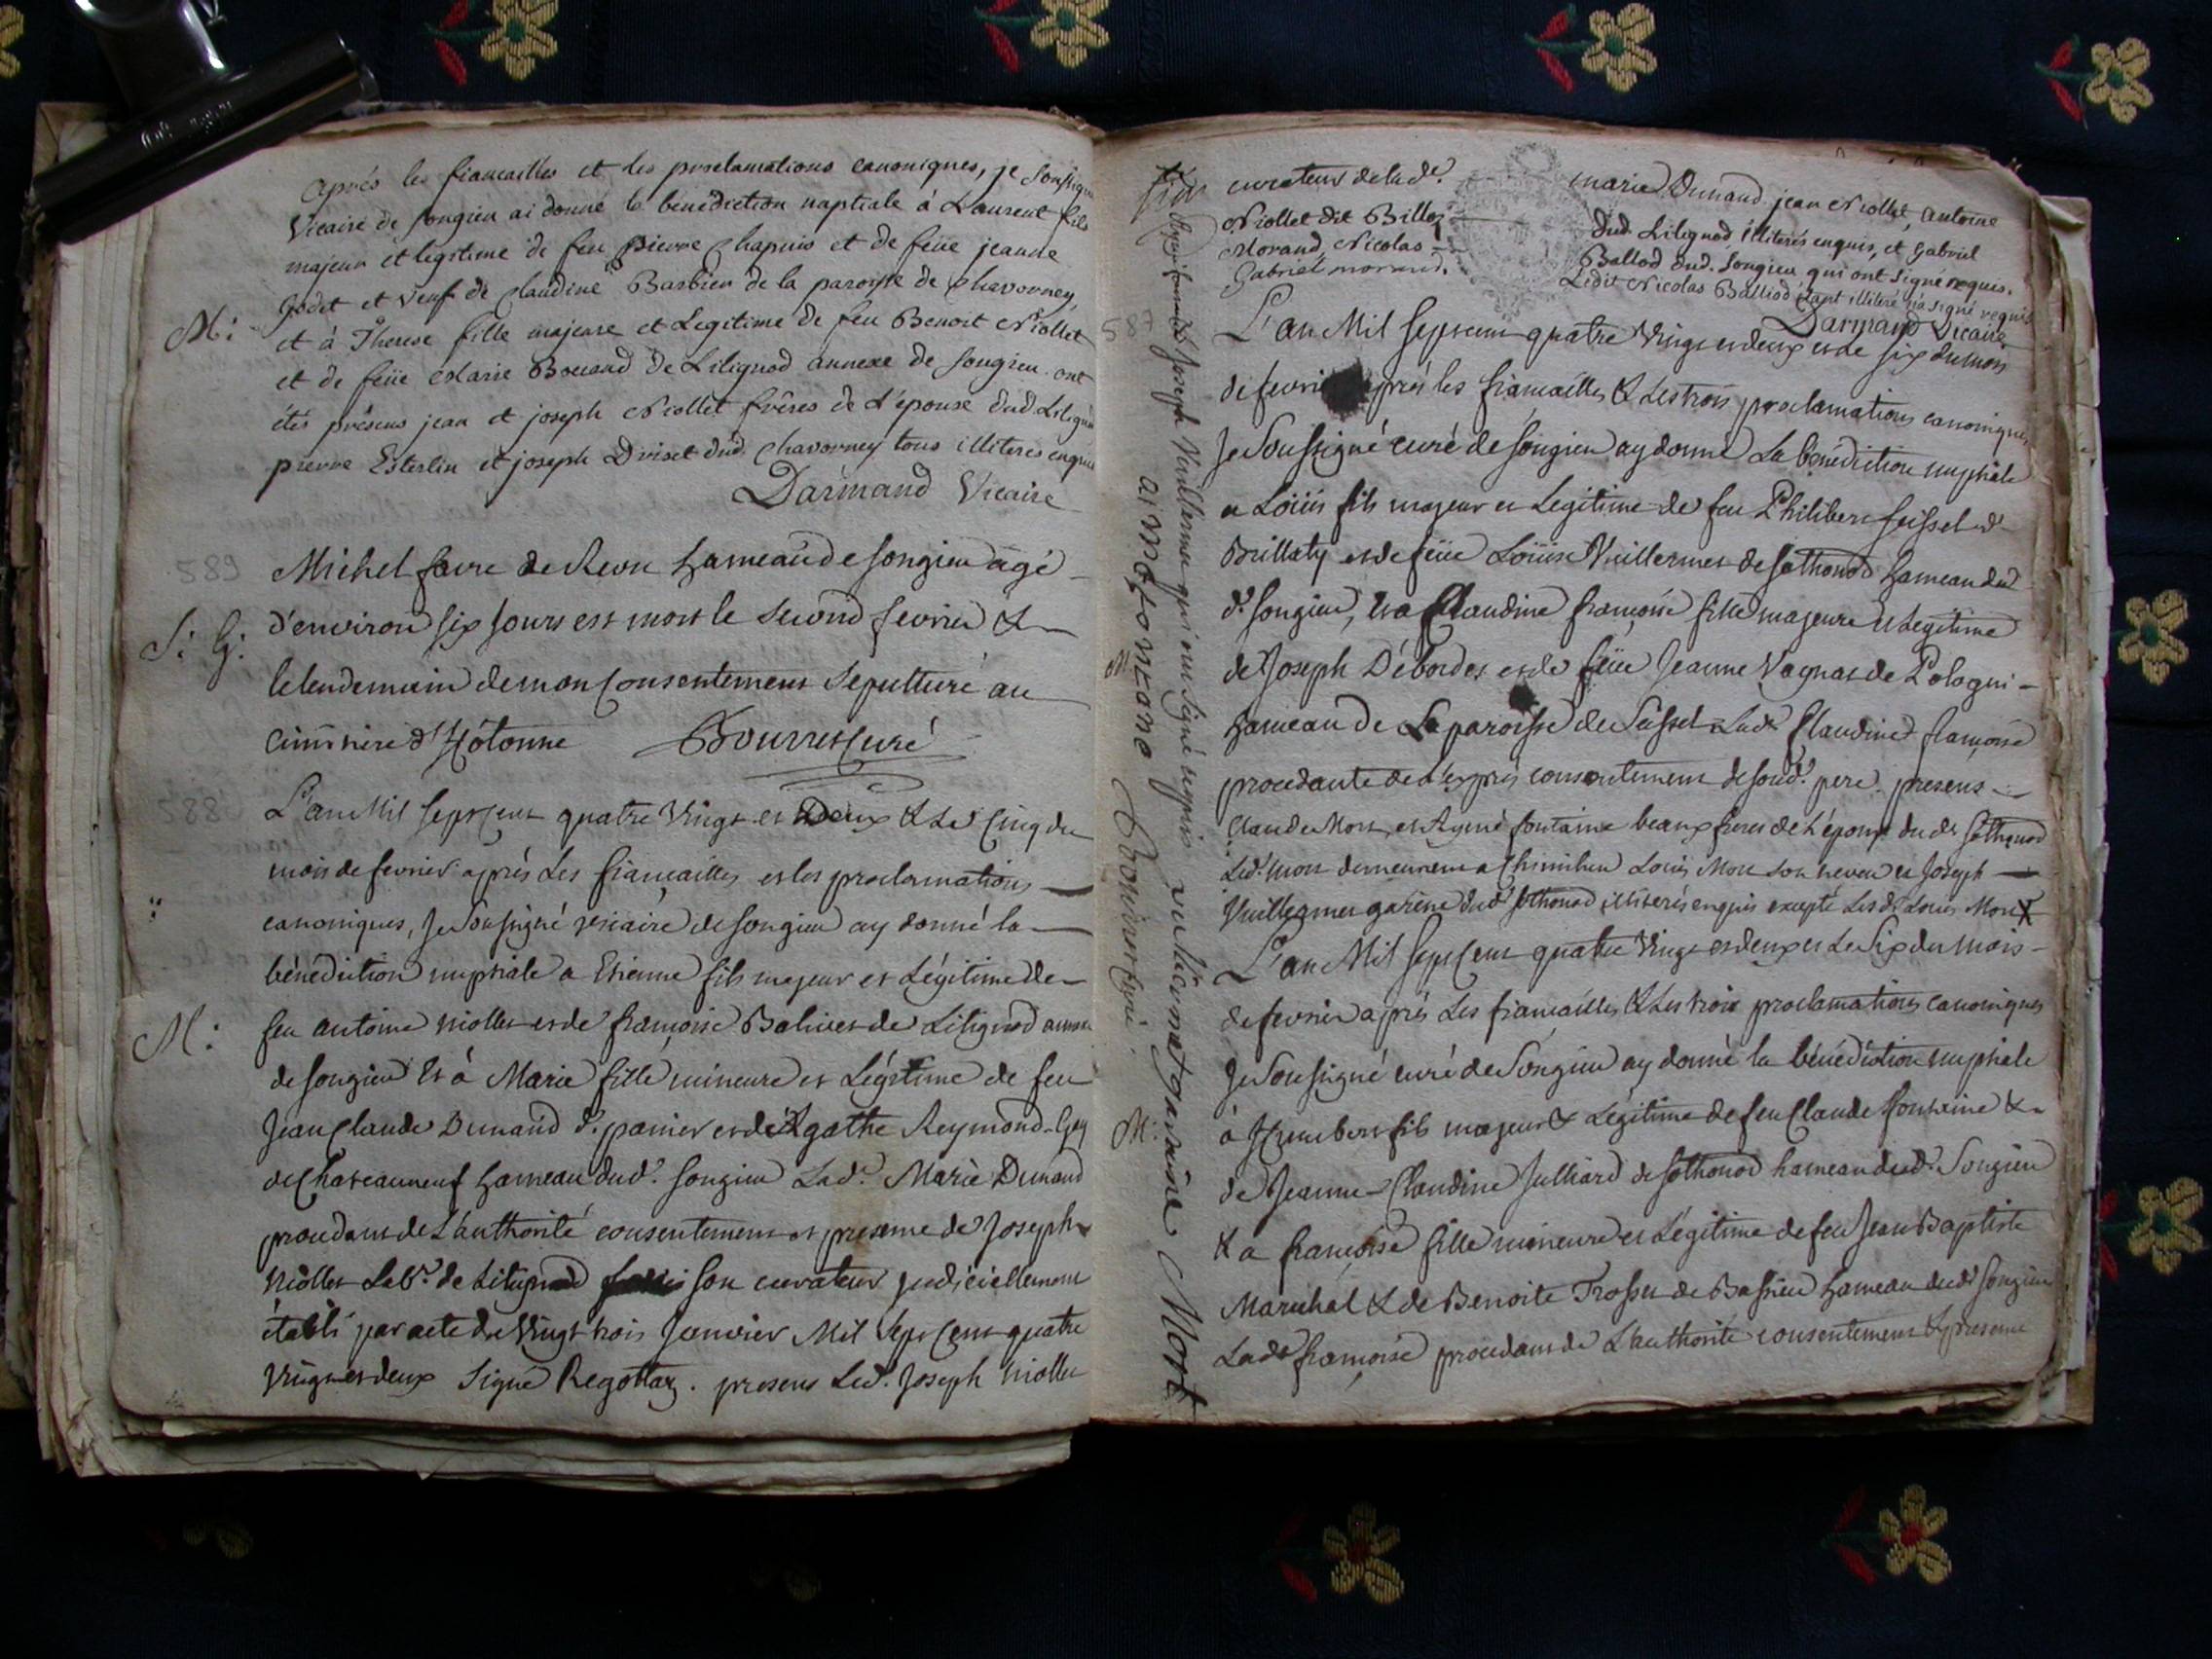 après les fiancailles et les proclamations canoniques, je soussigné
Vicaire de songieu ai donné la benediction nuptiale à Laurent fils
majeur et legitime de feu pierre Chapuis et de feüe jeanne
Godet et veuf de Claudine Barbier de la paroisse de Chavornay,
M:
et à Therese fille majeure et Legitime de feu Benoit Niollet
et de feüe Marie Bouand De Lilignod annexe de songieu. ont
étés présens jean et joseph Niollet frères de L'épouse dud Lilignod
pierre Esterlin et joseph Driset dud. Chavorney tous illiteres enquis
Darmand Vicaire
589
Michel favre de Reon hameau de songieu agé
S: G:
d'environ six jours est mort le second fevrier &
le lendemain de mon consentement sepulturé au
cimitiere d'Hôtonne Bourret curé
588
L'an Mil sept cent quatre vingt et Deux & Le cinq du
mois de fevrier après Les fiançailles et les proclamations
canoniques, Je soussigné vicaire de songieu ay donné la
bénédiction nuptiale a Etienne fils majeur et Légitime de
M:
feu antoine niollet et de françoise Balivet de Lilignod annexe
de songieu Et à Marie fille mineure et Légitime de feu
Jean Claude Dunand d. panier et de Agathe Reymond-Gey
de Chateauneuf hameau dud. songieu Lad. Marie Dunand
procedant de L'authorité consentement et presence de Joseph
niollet Labr. de Lilignod son curateur judiciellement
établi par acte du vingt trois Janvier Mil sept cent quatre
vingt et deux Signé Regottaz. presens Led. Joseph niollet
curateur de la de. marie Dunand jean Niollet, antoine
Niollet dit Billoz dud. Lilignod illiterés enquis, et Gabriel
Morand, Nicolas Balliod dud. songieu qui ont signé requis.
Gabriel morand. Ledit Nicolas Balliod étant illiteré n'a signé requis
Darmand Vicaire
587
L'an Mil sept cent quatre vingt et deux et le six du mois
de fevrier après les fiancailles & Les trois proclamations canoniques
Je Soussigné curé de songieu ay donné La benediction nuptiale
a Loüis fils majeur et Legitime de feu Philibert seissel d
Brillaty et de feüe Loüise Vuillermet de sothonod hameau dud
d. songieu, Et a Claudine françoise fille majeure et Legitime
M:
de Joseph Débordes et de feüe Jeanne Vagnat de Pologni
hameau de La paroisse de Seissel Lade. Claudine françoise
procedante de L'exprès consentement de soud. pere. presens
Claude Mort, et Aymé fontaine beaux freres de L'epoux du dt sothonod
Led. mort demeurent a Chemilieu Loüis Mort son neveu et Joseph
Vuillermet garine dud. sothonod illiterés enquis excepté Lesdt Louis Mort X
L'an Mil sept cent quatre vingt et deux et Le Six du Mois
de fevrier après Les fiancailles & Les trois proclamations canoniques
Je Soussigné curé de Songieu ay donné la bénédiction nuptiale
M:
à Humbert fils majeur & Légitime de feu Claude fontaine &
de Jeanne-Claudine Julliard de sothonod hameau dud. Songieu
& a françoise fille mineure et Légitime de feu Jean Baptiste
Maréchal & de Benoite Trosset de Bassieu hameau dudt songieu
Ladte françoise procedant de L'authorité consentement & presence
Aymé fontaine & Joseph Vuillermet qui ont signé requis vuliermet garine Mort
aime fontane Bourret curé